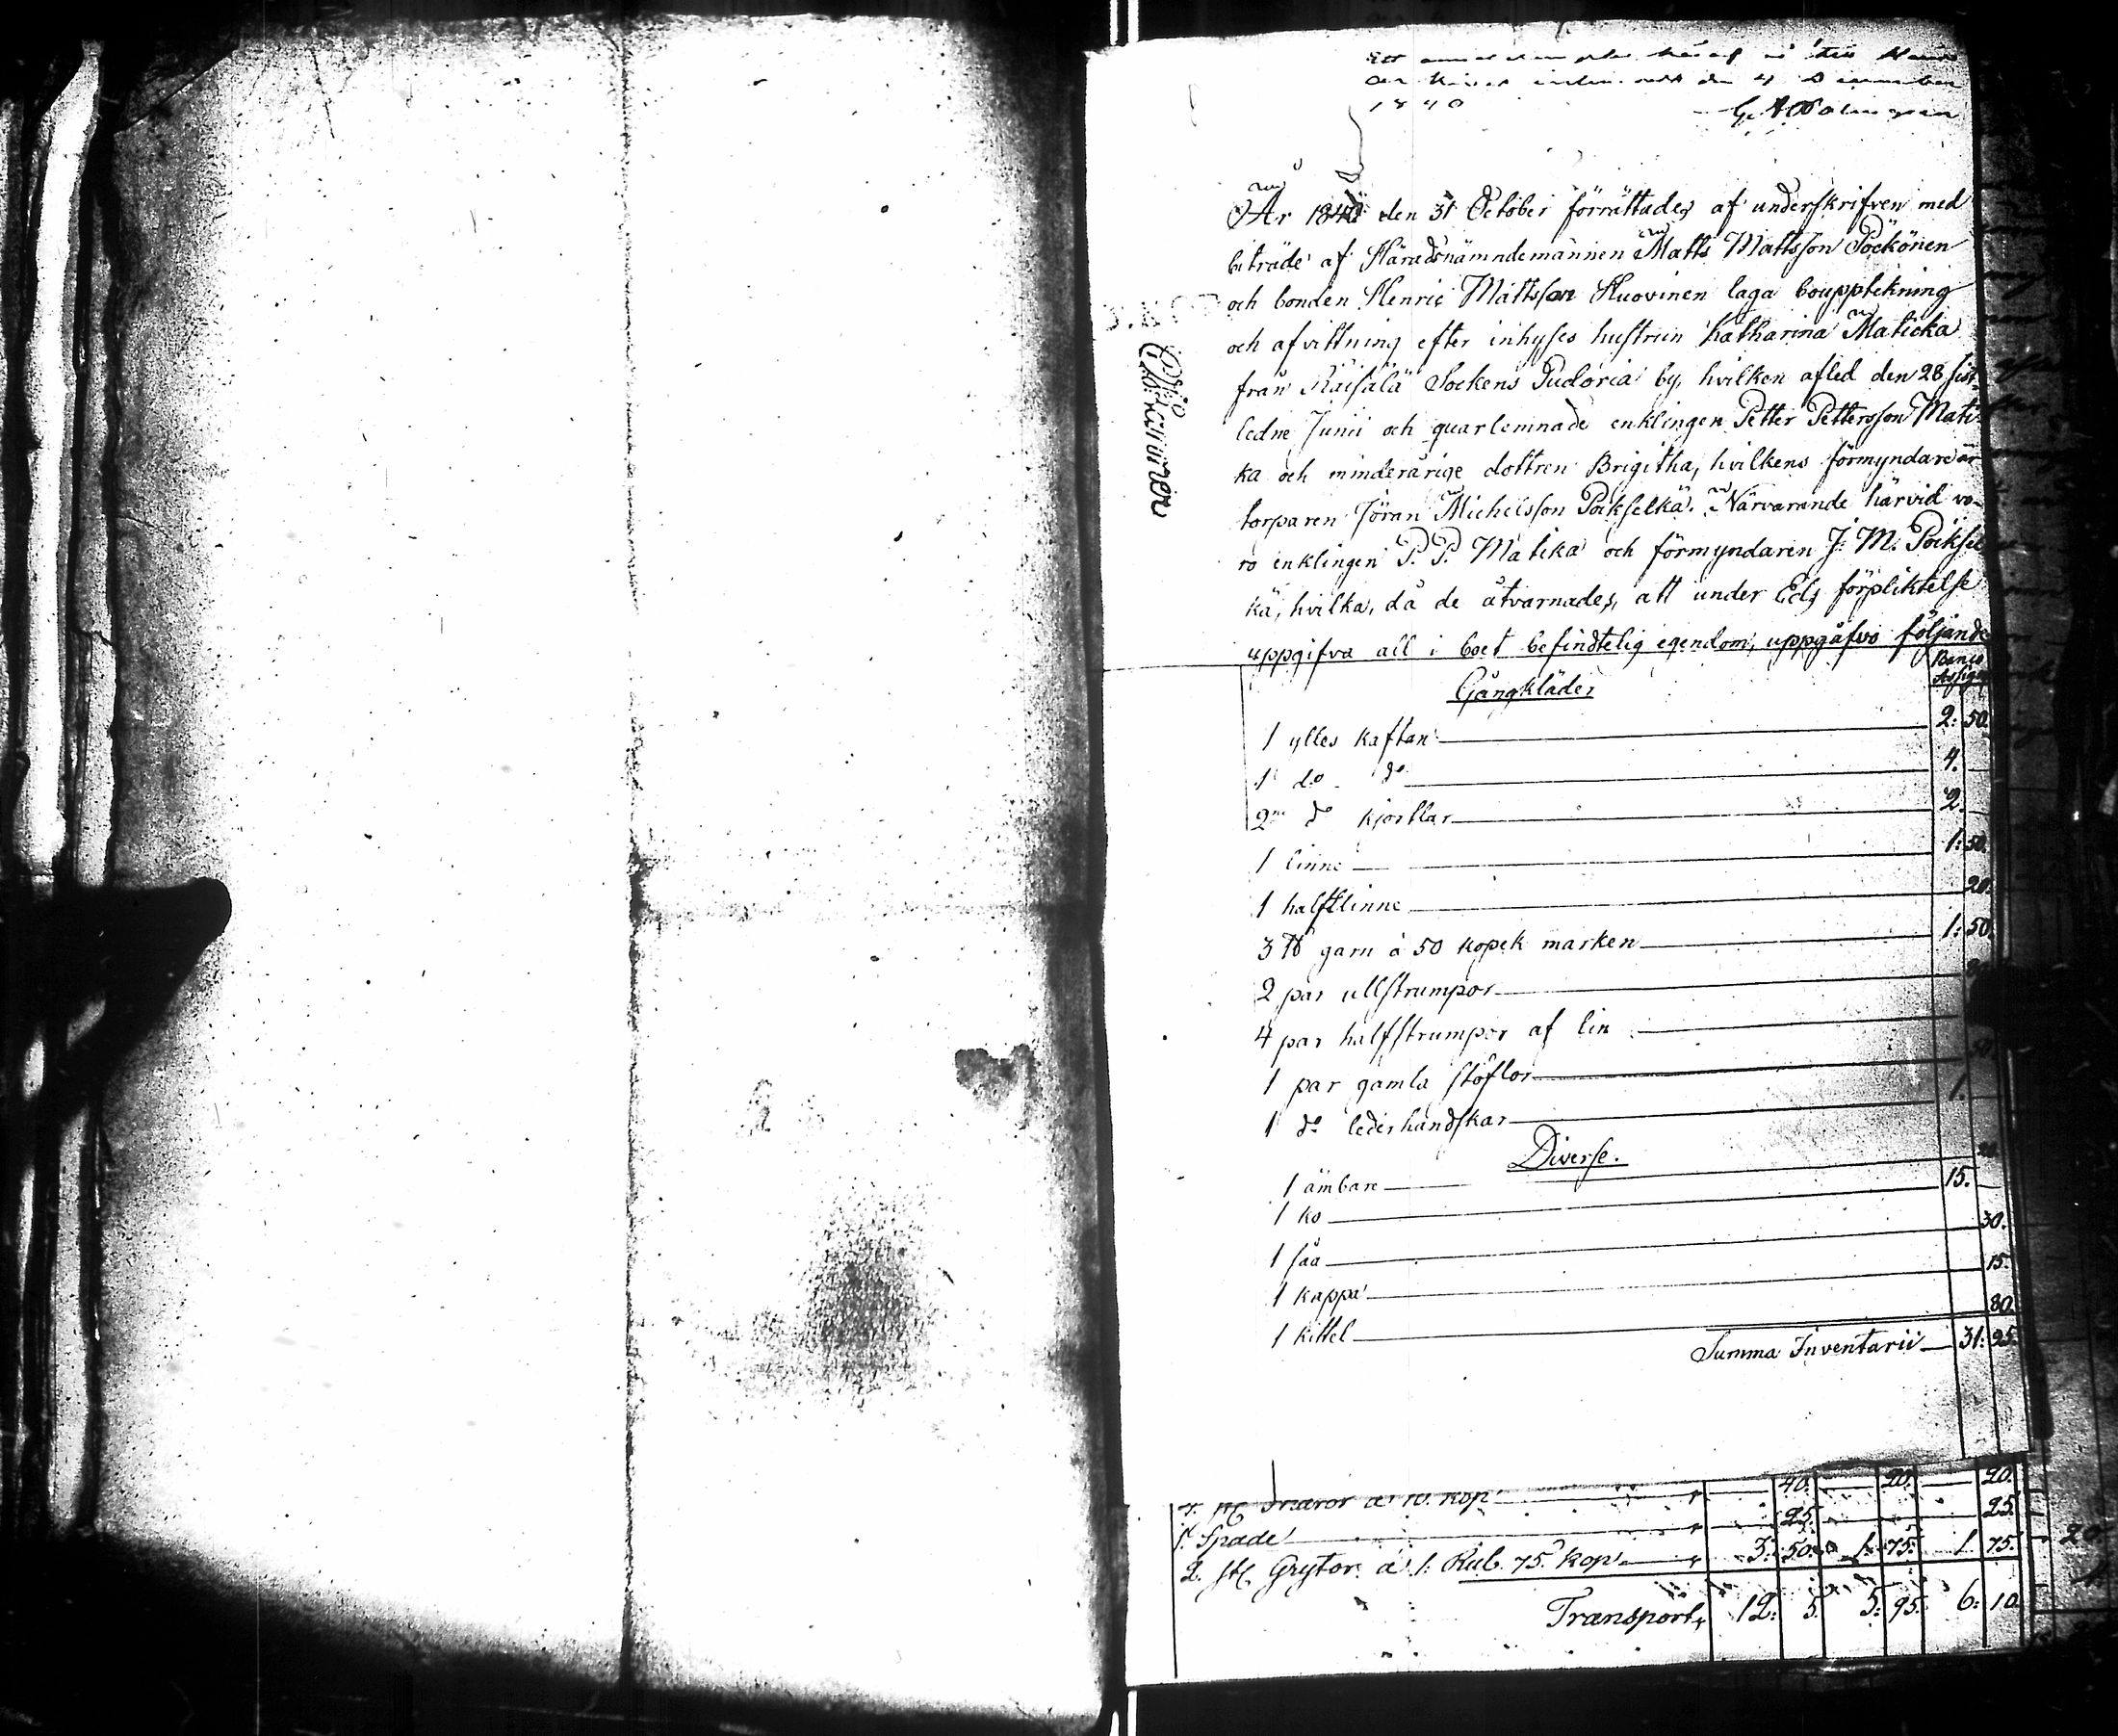 den 4 December
1840
År 1840 den 31 October förrättades af underskrifven med
biträde af Häradsnämndemännen Matts Mattsson Pöckönen
och bonden Henric Mattsson Huovinen laga bouppteckning
och afvittning efter inhyses hustrun Katharina Maticka
från Räisälä Sockens Pudoria by, hvilken afled den 28 sist-
ledne Junii och quarlemnade enklingen Petter Pettersson Mati-
ka och minderårige dottren Brigitha, hvilkens förmyndare är
torparen Jöran Michelsson Poikselkä. Närvarande härvid vo-
ro enklingen P. P. Matika och förmyndaren J. M. Poiksel
kä, hvilka, då de åtvarnades, att under Eds förpliktelse
uppgifva all i boet befindtelig egendom, uppgåfvo följande
Banco
Assign
Gångkläder
1 ylles kaftan 2: 50.
1 do do 4. —
2ne do kjortlar 2. —
1 linne 1: 50.
1 halftlinne 20.
3 ℔ garn à 50 kopek marken 1: 50.
2 par ullstrumpor
4 par halfstrumpor af lin
1 par gamla stöflor 50.
1 do lederhandskar 1.
Diverse.
1 ämbare
1 ko 15. —
1 såå 30.
1 kappa 15.
1 kittel 80.
Summa Inventarii 31: 95.
kop 40. 20. 20.
1. Spade 25. 25.
2. st. Grytor à 1. Rub. 75 kop 3: 50. 1: 75. 1 75.
Transport, 12: 5. 5: 95. 6: 10.